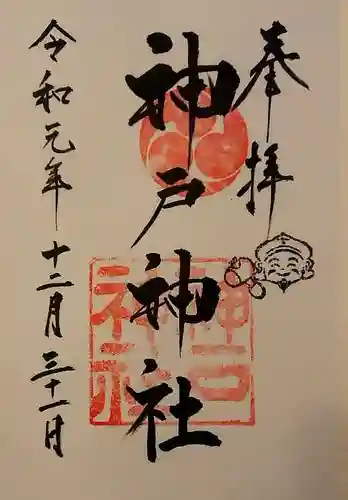 奉拝
神戸神社
神戸
神社
令和元年十二月三十一日